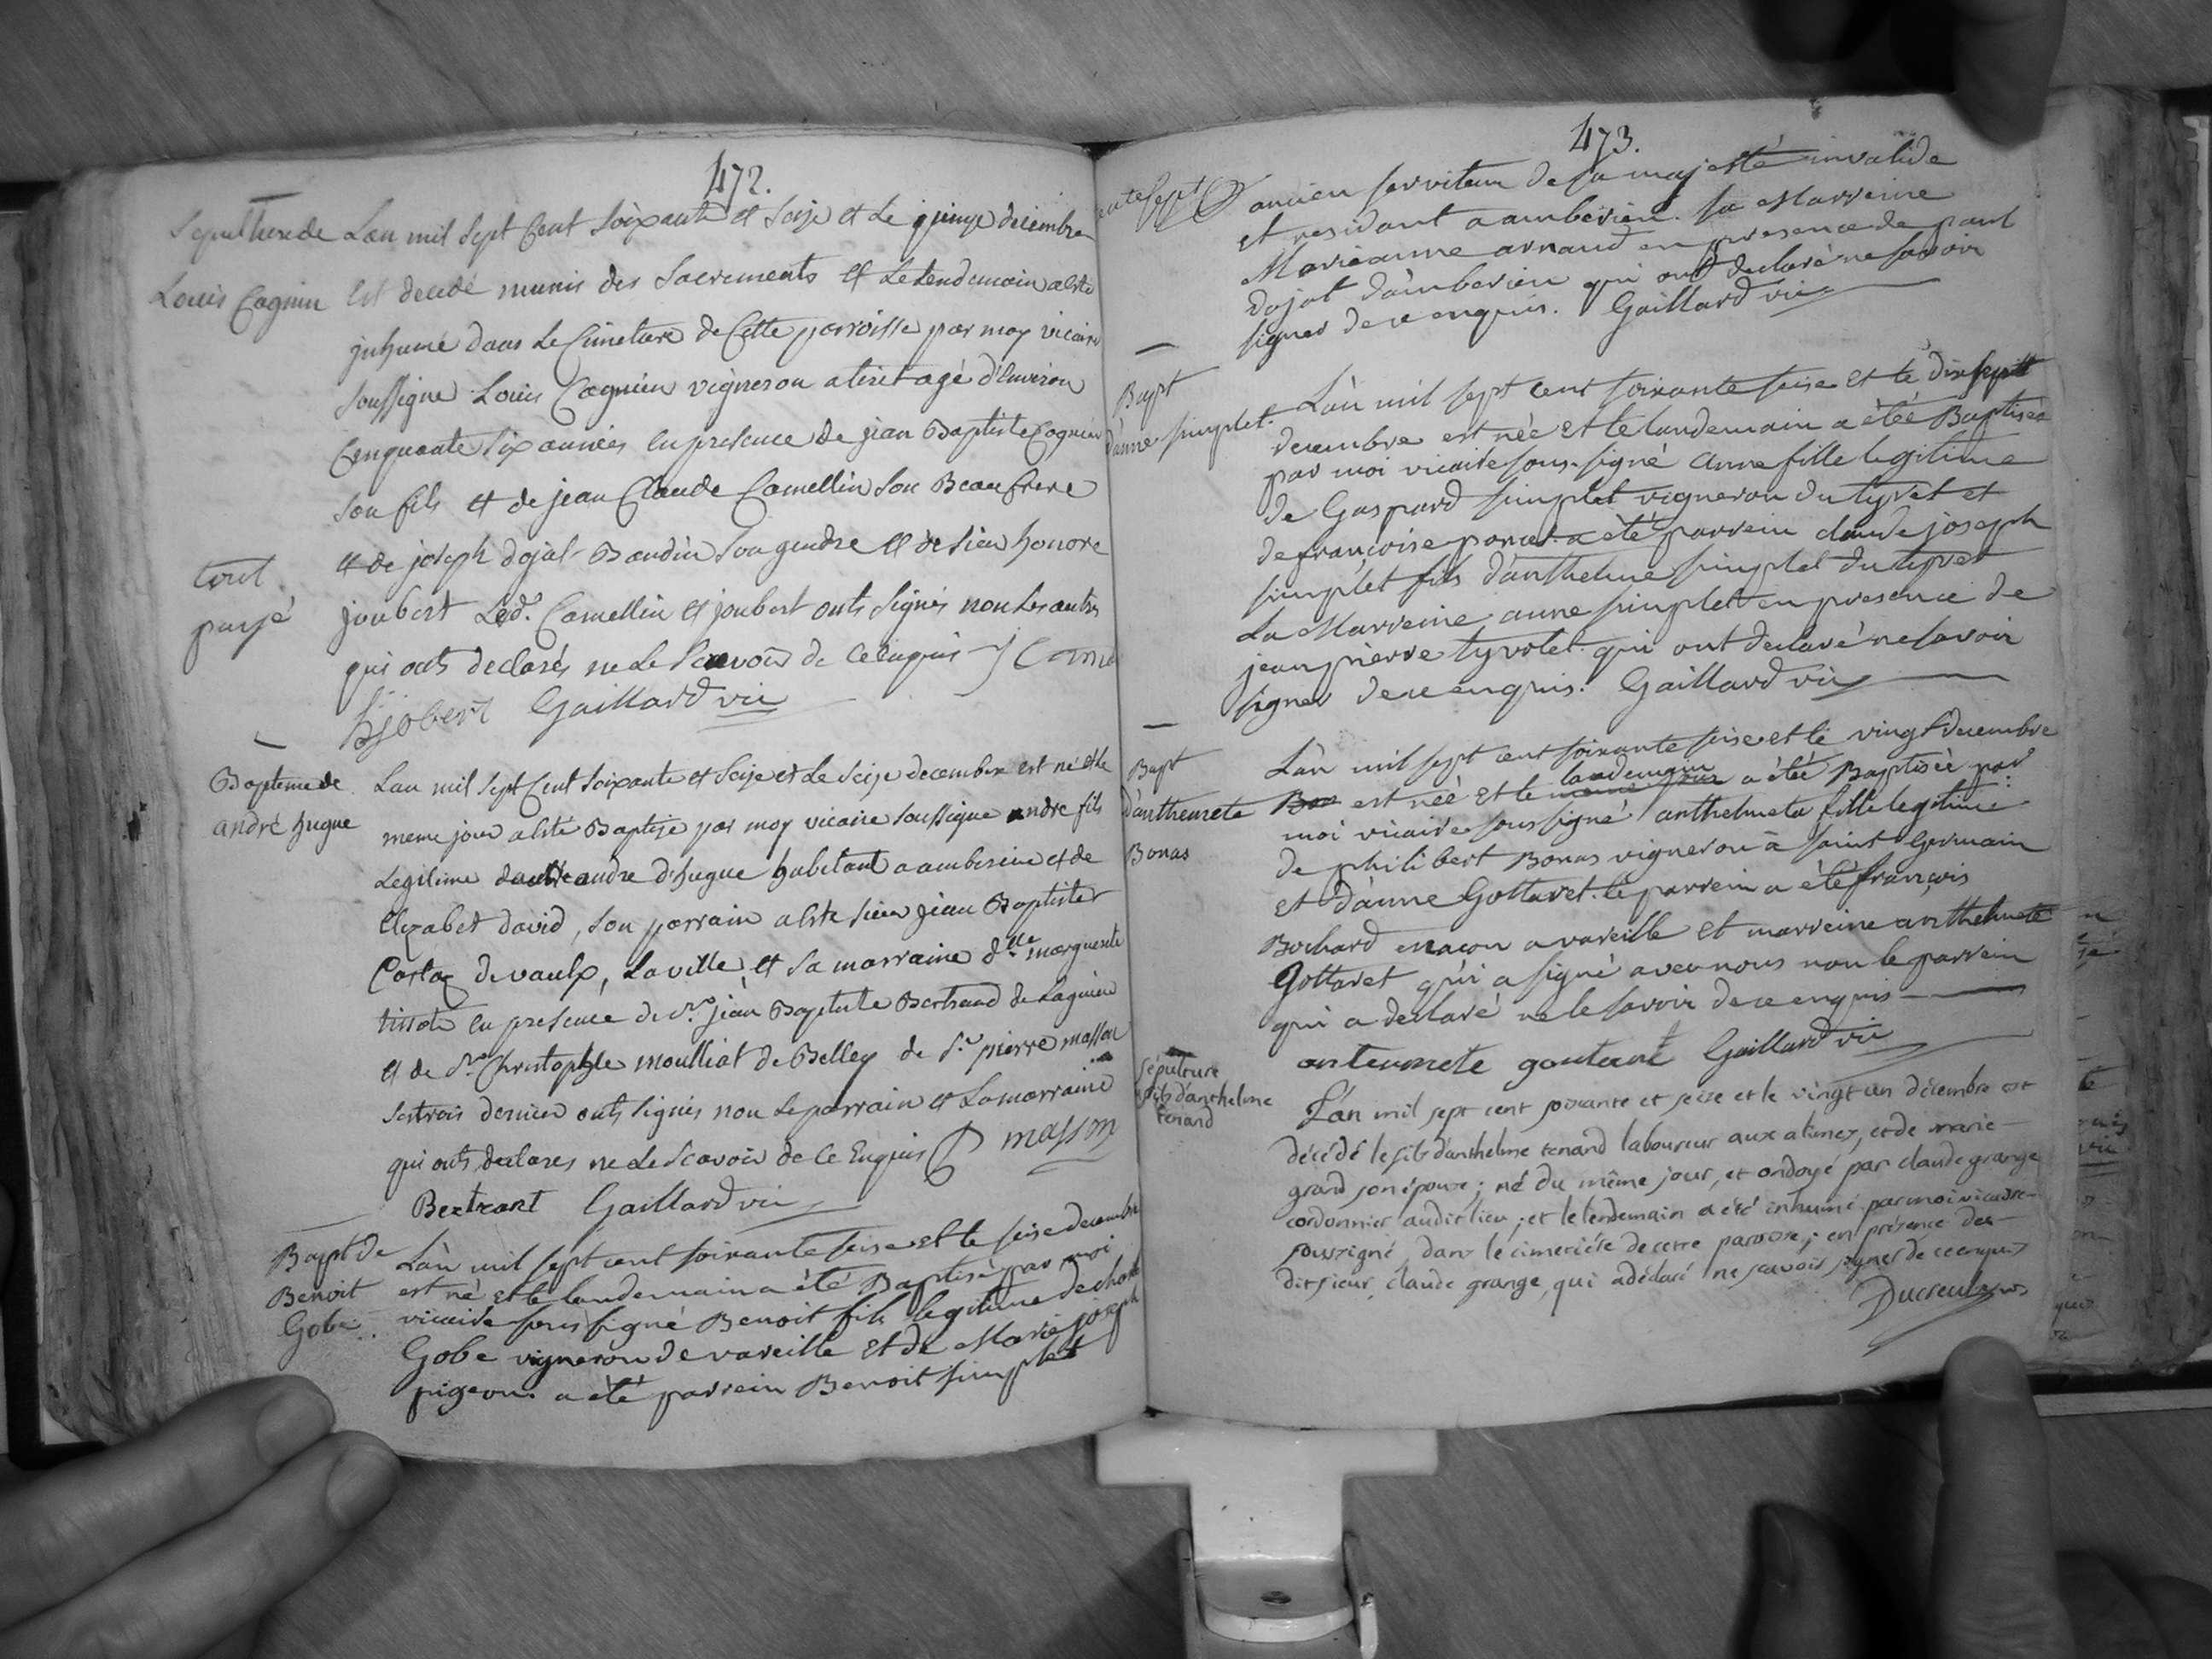 472.
Sepulture de
Louis Cognin
Lan mil sept Cent soixante et seize et le quinze decembre
est decedé munis des sacrements et le lendemain a este
inhumé dans le Cimetiere de Cette parroisse par moy vicaire
soussigne Louis Cognin vigneron a tiret agé d'environ
Cenquante six années en presence de jean Baptiste Cognin
son fils et de jean Claude Camellin son Beaufrere
et de joseph dojat Baudin son gendre et de sieur honore
joubert Led. Camellin et joubert onts signés non les autres
qui onts declarés ne le scavoir de ce enquis J Came
hjobert Gaillard vic
tout
payé
Bapteme de
andré hugue
Lan mil sept Cent soixante et seize et le seize decembre est né et le
meme jour a esté Baptize par moy vicaire soussigne andre fils
Legitime andre d'hugue habitant a amberieu et de
Elizabet david, son parrain a este sieur jean Baptiste
Costaz de vaulx, la ville et sa marraine dlle marguerite
tissot en presence de Sr jean Baptiste Bertrand de Lagnieu
et de Sr Christophle moulliat de Belley de Sr pierre masson
Les trois dernier onts signés non le parrain et La marraine
qui onts declarés ne le scavoir de ce Enquis P masson
Bertrant Gaillard vic
Bapt de
Benoit
Gobe
L'àn mil sept cent soixante seise et le seise decembre
est né et le landemain a été Baptisé par moi
vicaire sous signé Benoit fils legitime de
Gobe vigneron de vareille et de Marie joseph
pigeon. a été parrein Benoit simplet
473.
ancien serviteur de sa majesté invalide
et residant a amberieu. sa Marreine
Marieanne arnaud en presence de paul
dojat d'amberieu qui ont declaré ne savoir
signer de ce enquis. Gaillard vic
Bapt
d'anne simplet.
L'àn mil sept cent soixante seise et le dixsept
decembre est née et le landemain a étée Baptisée
par moi vicaire sous-signé Anne fille legitime
de Gaspard simplet vigneron du tyret et
de françoise poncet a été parrein claude joseph
simplet fils d'anthelme simplet du tyret
La Marreine anne simplet en presence de
jean pierre tyvolet qui ont declaré ne savoir
signer de ce enquis. Gaillard vic
Bapt
d'anthemete
Bonas
L'àn mil sept cent soixante seise et le vingt decembre
est née et le landemain a étée Baptisée par
moi vicaire sous signé anthelmete fille legitime
de philibert Bonas vigneron à saint Germain
et d'anne Gottaret. le parrein a été françois
Bochard maçon a vareille et marreine anthelmete
Gottaret qui a signé avec nous non le parrein
qui a declaré ne le savoir de ce enquis
antermete gontaret Gaillard vic
Sépulture
fils d'anthelme
tenard
L'an mil sept cent soixante et seize et le vingt un décembre est
décédé le fils d'anthelme tenard laboureur aux alimes, et de marie
grand son épouse; né du même jour, et ondoyé par claude grange
cordonnier audit lieu; et le lendemain a été inhumé par moi vicaire
soussigné, dans le cimetiére de cette paroisse; en présence du
dit sieur, claude grange, qui a déclaré ne scavoir signer de ce enquis